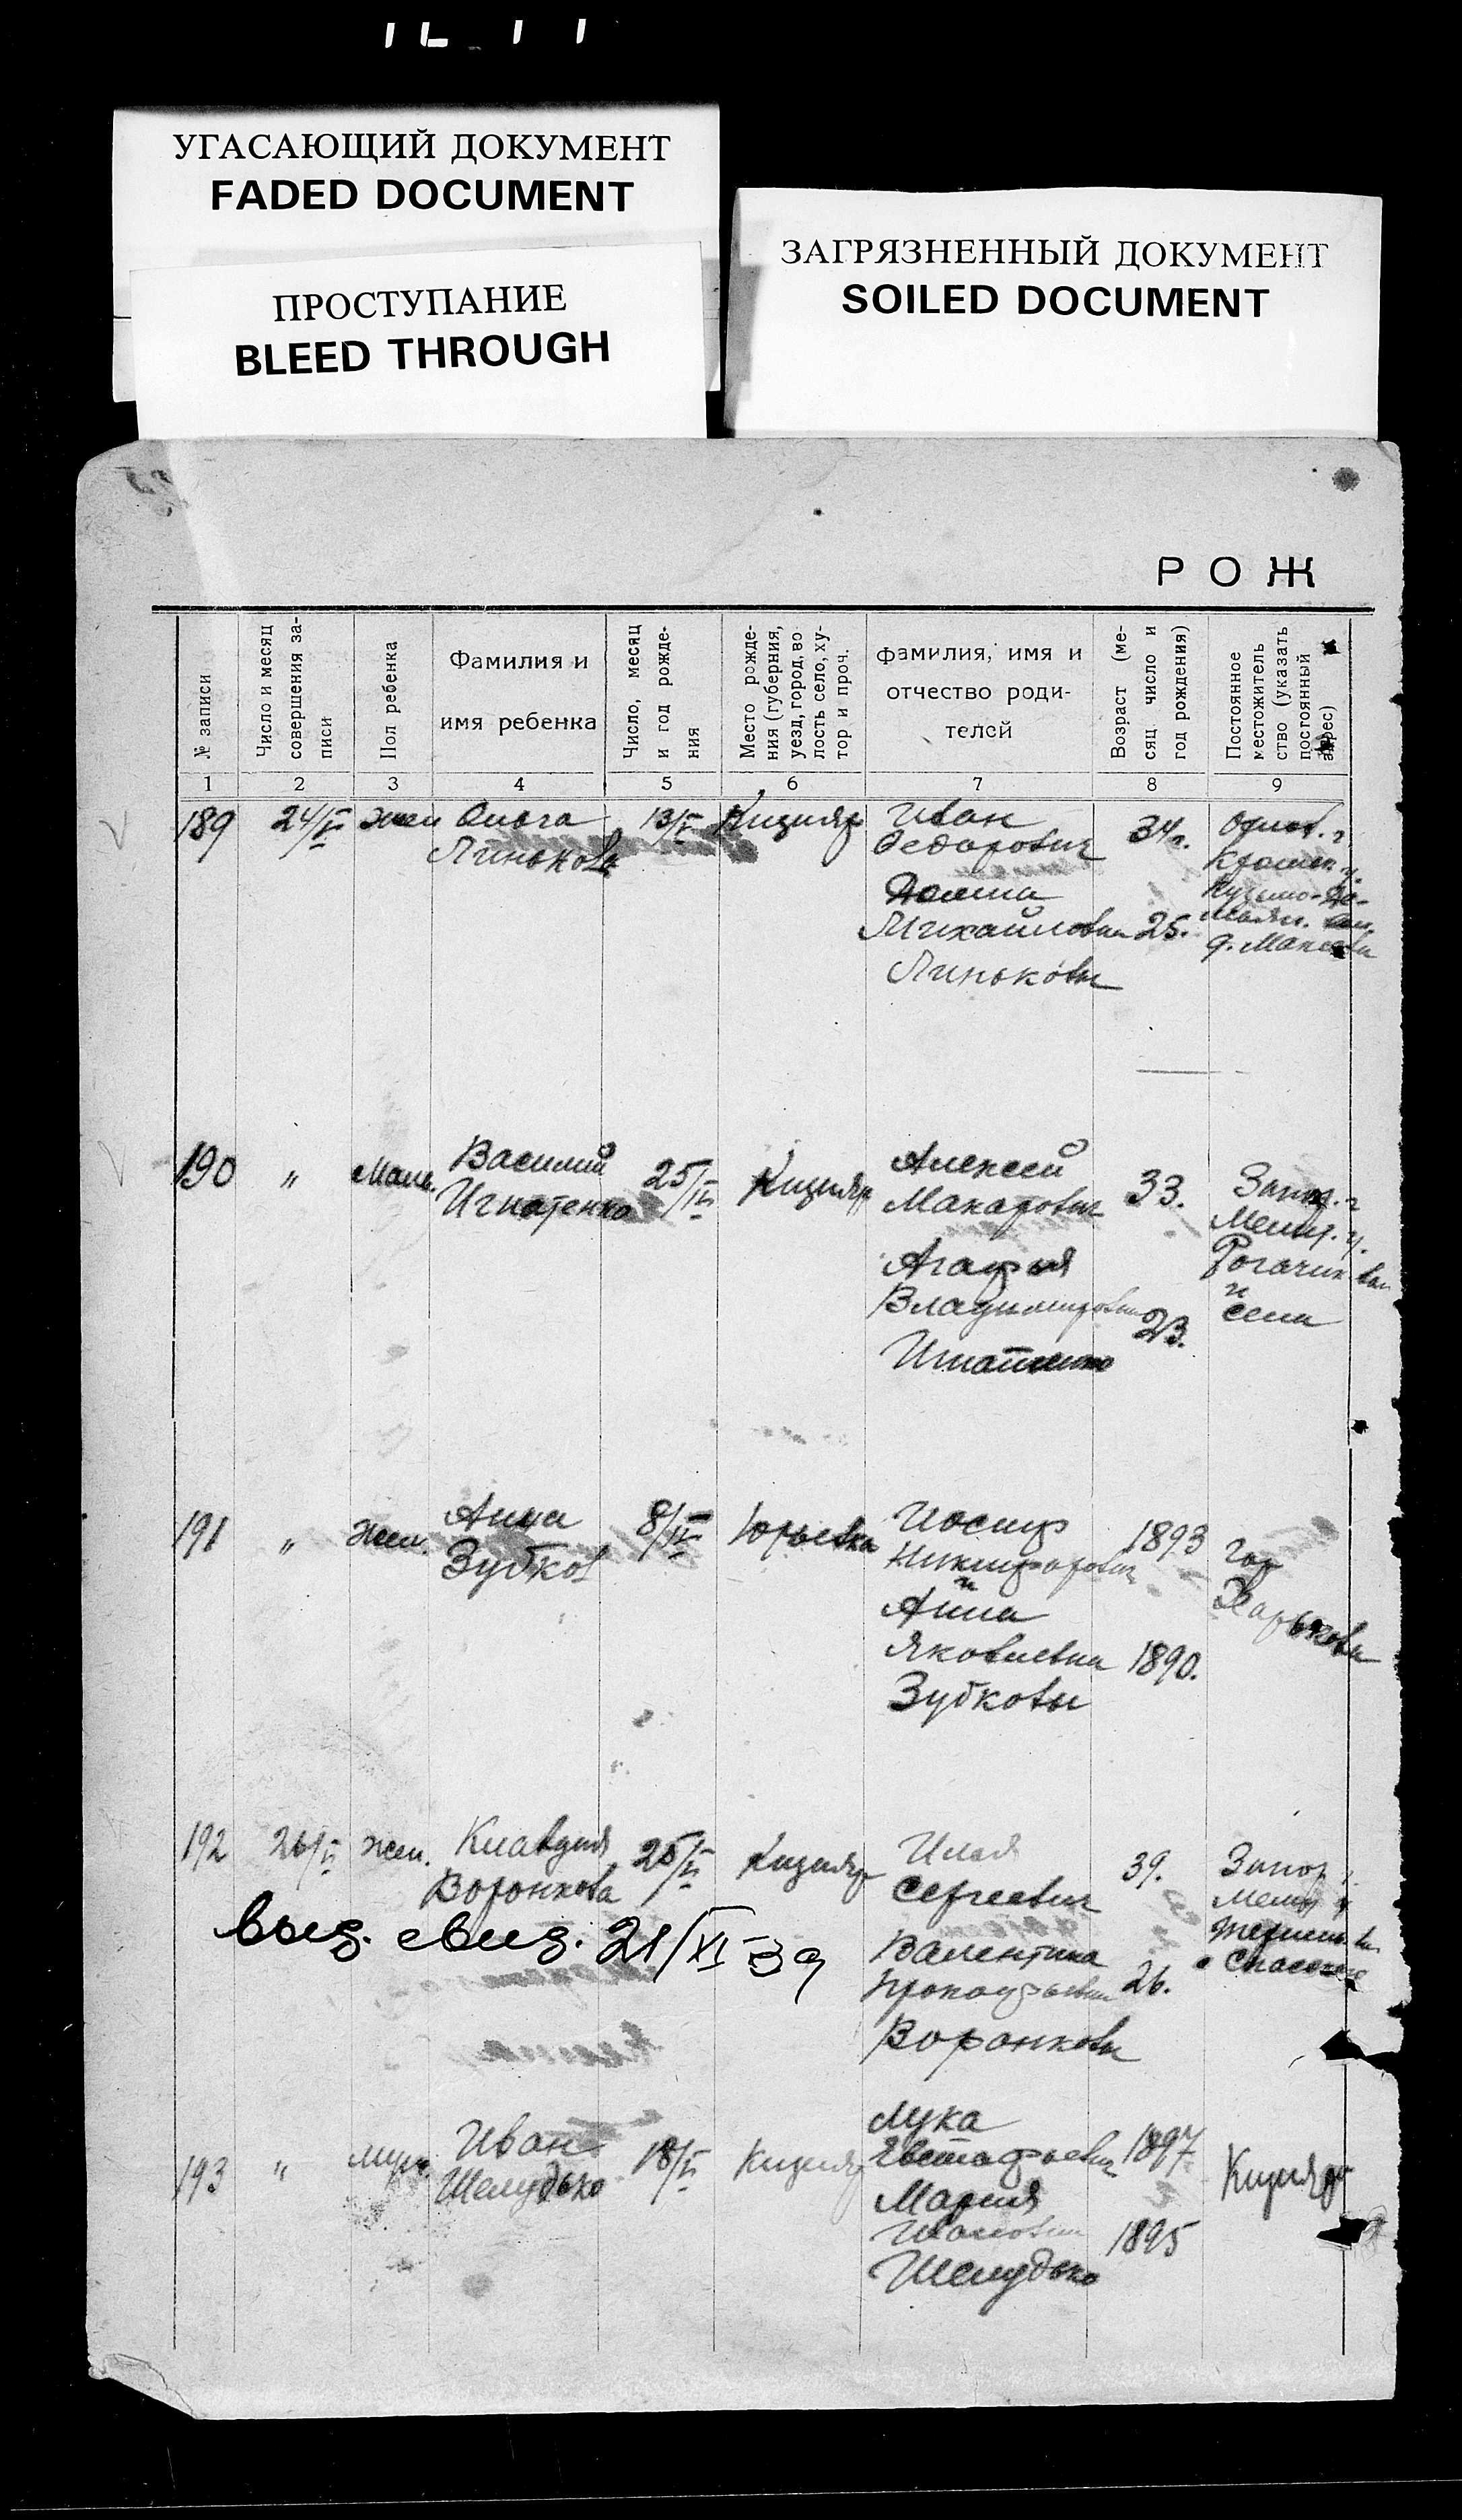 УГАСАЮЩИЙ ДОКУМЕНТ
FADED DOCUMENT
ПРОСТУПАНИЕ
BLEED THROUGH
ЗАГРЯЗНЕННЫЙ ДОКУМЕНТ
SOILED DOCUMENT
РОЖ
№ записи
Число и месяц
совершения за-
писи
Пол ребенка
Фамилия и
имя ребенка
Число, месяц
и год рожде-
ния
Место рожде-
ния (губерния,
уезд, город, во
лость село, ху-
тор и проч.
Фамилия, имя и
отчество роди-
телей
Возраст (ме-
сяц число и
год рождения)
Постоянное
местожитель
ство (указать
постоянный
адрес)
1 2 3 4 5 6 7 8 9
189 24/V жен Ольга 13/V Кизияр Иван 34 г.
Линькова Федорович
Михайловна 25.
Линьковы
190 " Муж. Василий 25/IV Кизияр Алексей 33.
Игнатенко Макарович
Агафья
Владимировна 23.
Игнатенко
Рогачик
и
села
191 " Жен. Анна 8/IV Юрьевка Иосиф 1893 гор
Зубков Никифорович Харькова
и
Анна
Яковлевна 1890.
Зубковы
192 26/V жен. Клавдия 25/V Кизияр Илья 39. Запор
Воронкова Сергеевич
выд. свид. 21/XI-39
Валентина
Прокофьевна 26.
Воронковы
193 " муж. Иван 18/V Кизияр Лука 1897 Кизияр
Шелудько Евстафьевич
Мария
1895
Шелудько